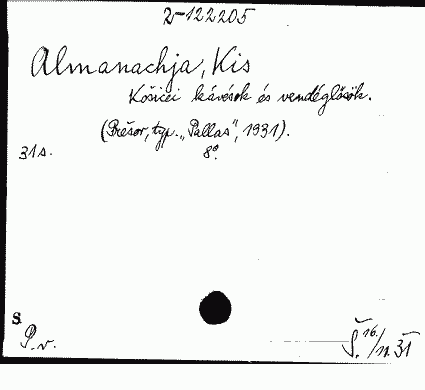 2-122205
Almanachja, Kis
Košicei kávésok és vendéglősök.
(Prešov, typ. „Pallas", 1931).
31 s. 8°.
S
P. v.
Š. 16/11 31